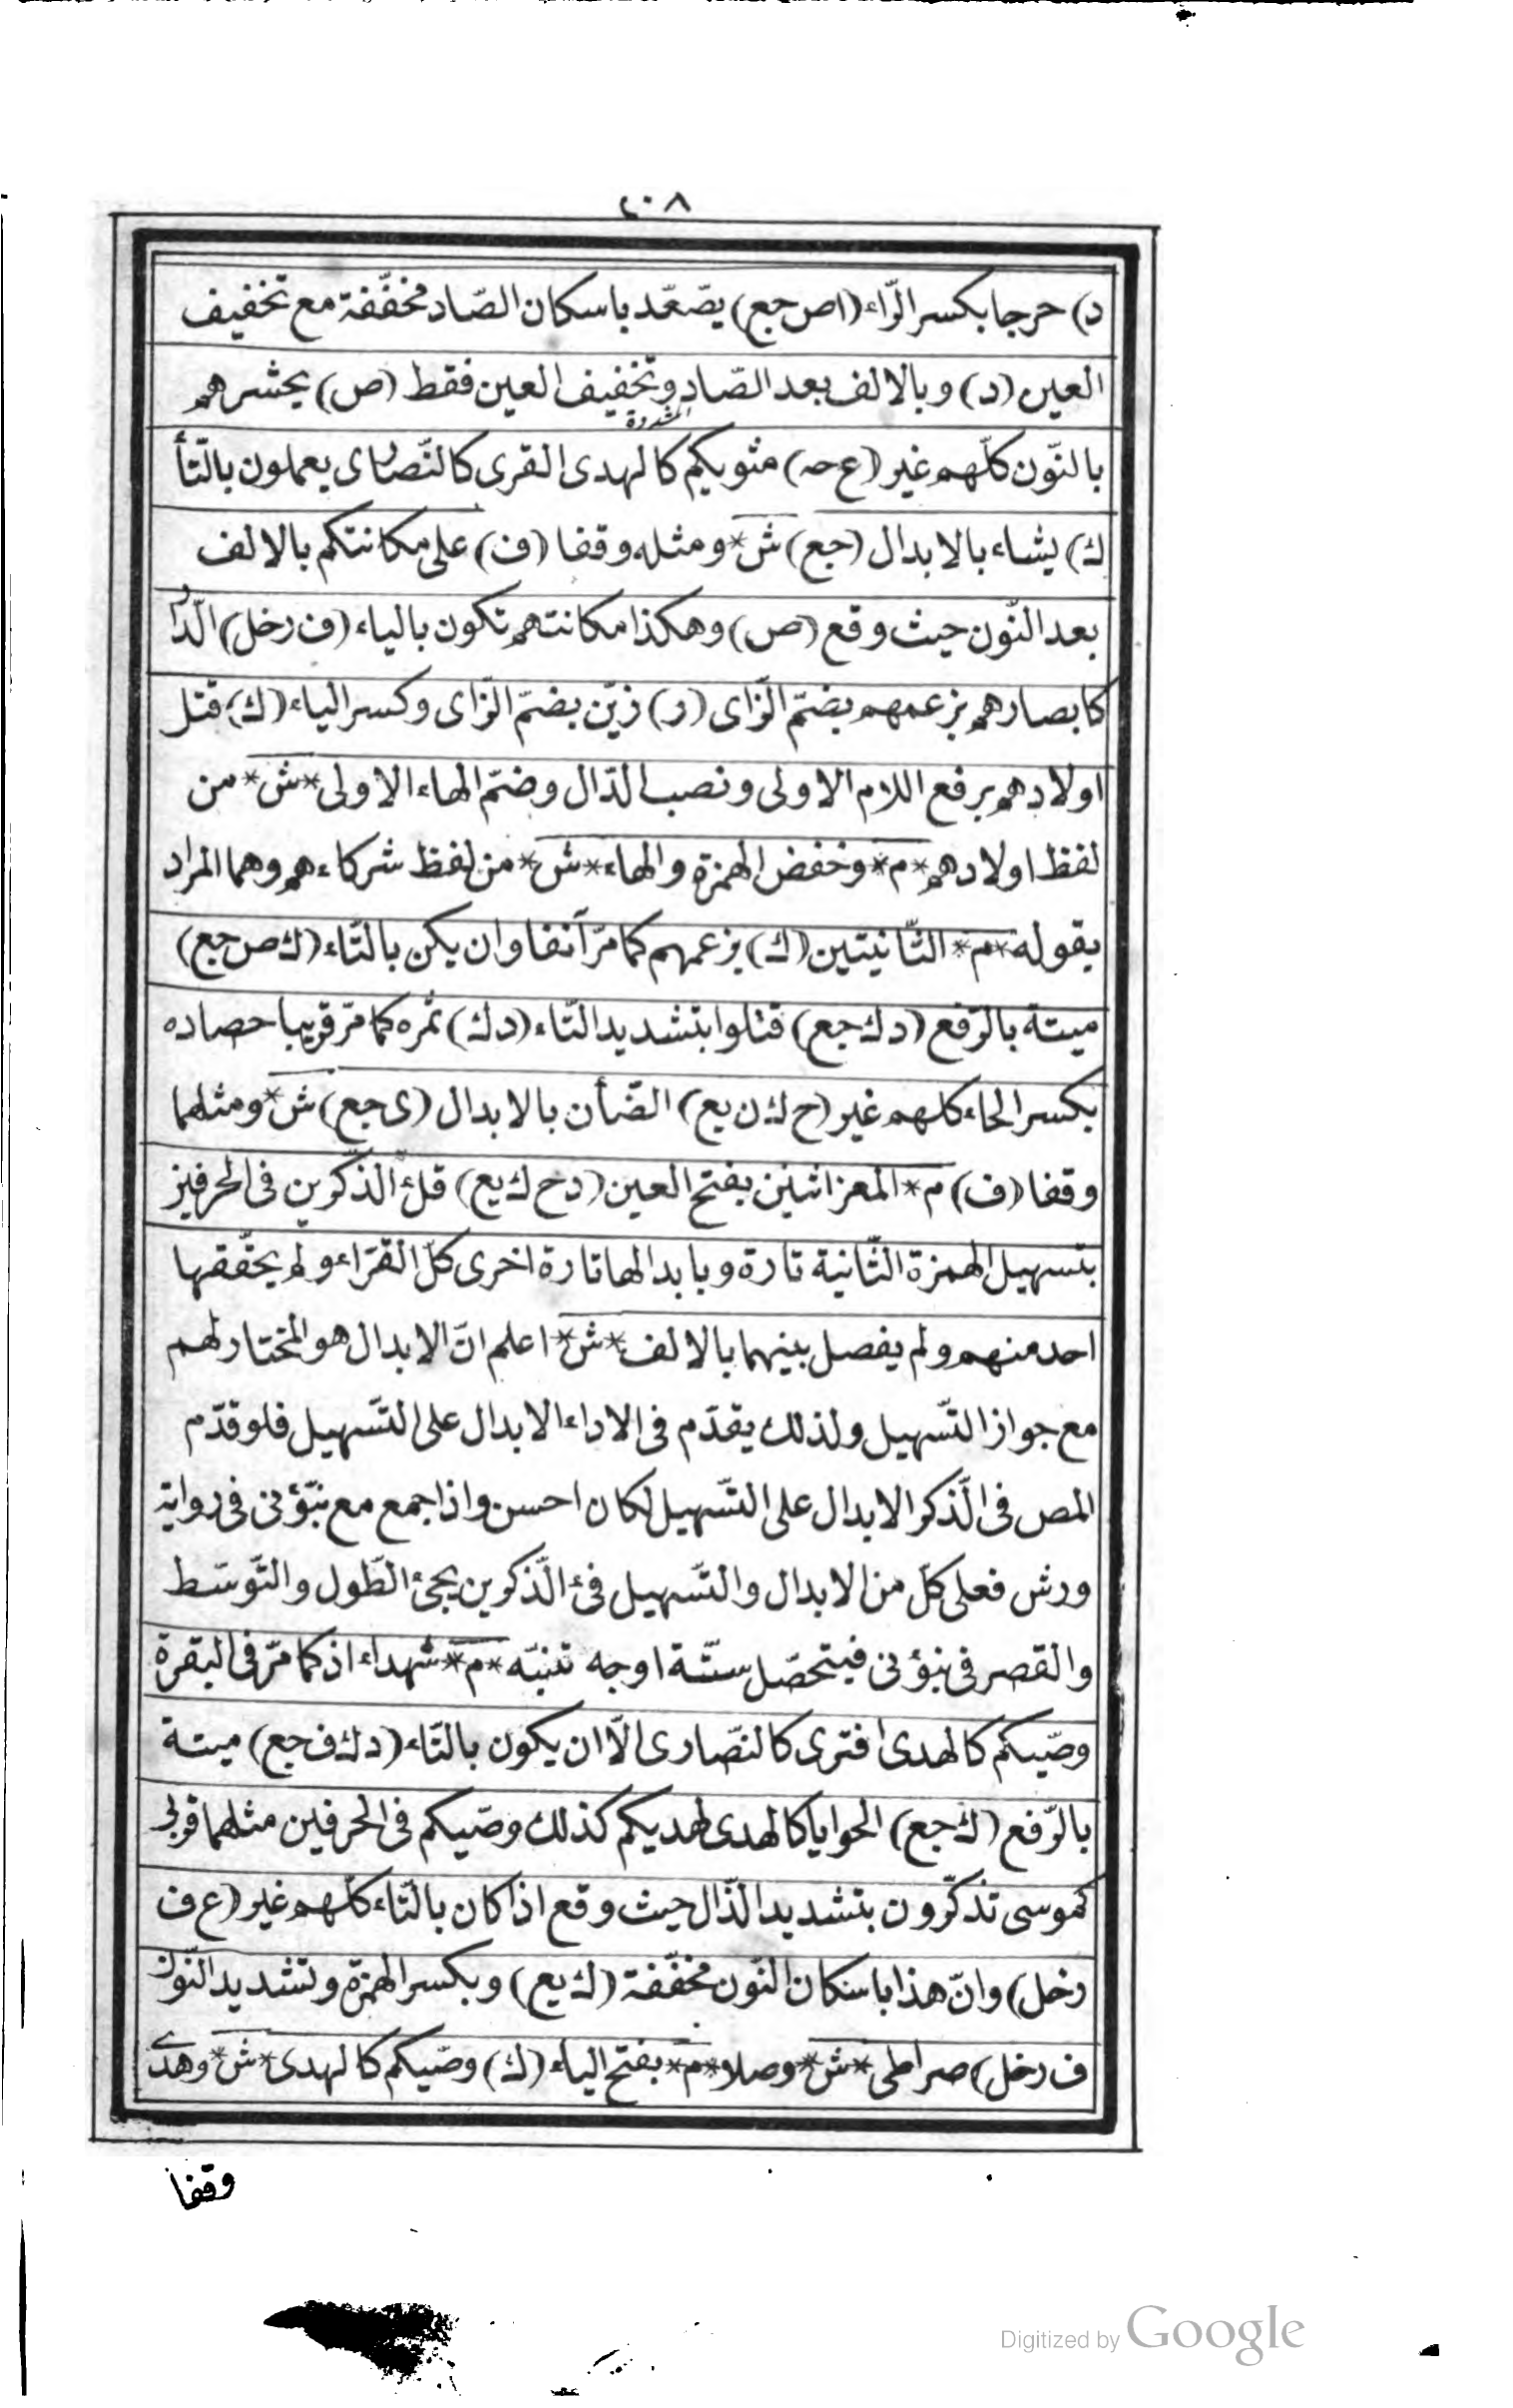 ٢٠٨
د) حرجا بكسر الرّاء (ا ص جع) يصّعّد باسكان الصّاد مخفّفة مع تخفيف
العين (د) وبالالف بعد الصّاد وتخفيف العين فقط (ص) يحشرهم
المشددة
بالنّون كلّهم غير (ع حه) مثويكم كالهدى القرى كالنّصارى يعملون بالتّأ
ك) يشاء بالابدال (جع) ش* ومثله وقفا (ف) على مكانتكم بالالف
بعد النّون حيث وقع (ص) وهكذا مكانتهم تكون بالياء (ف رخل) الدّار
كابصارهم بزعمهم بضمّ الزّاى (ر) زيّن بضمّ الزّاى وكسر الياء (ك) قتل
اولادهم برفع اللام الاولى ونصب الدّال وضمّ الهاء الاولى *ش* من
لفظ اولادهم *م* وخفض الهمزة والهاء *ش* من لفظ شركاءهم وهما المراد
بقوله *م* الثّانيتين (ك) بزعمهم كما مرّ آنفا وان يكن بالتّاء (ك ص جع)
ميتة بالرّفع (د ك جع) قتلوا بتشديد التّاء (د ك) ثمره كما مرّ قريبا حصاده
بكسر الحاء كلهم غير (ح ك ن يع) الضّأن بالابدال (ى جع) ش* ومثلهما
وقفا (ف) م* المعز اثنين بفتح العين (د ح ك يع) قل ءالذّكرين فى الحرفين
بتسهيل الهمزة الثّانية تارة وبابدالها تارة اخرى كلّ القرّاء ولم يحقّقها
احد منهم ولم يفصل بينهما بالالف *ش* اعلم انّ الابدال هو المختار لهم
مع جواز التّسهيل ولذلك يقدّم فى الاداء الابدال على التّسهيل فلو قدّم
المص فى الّذكر الابدال على التّسهيل لكان احسن واذا جمع مع نبّؤنى فى رواية
ورش فعلى كلّ من الابدال والتّسهيل فى ءالّذكرين يجئ الطّول والتّوسّط
والقصر فى نبؤنى فيتحصّل ستّة اوجه تنبّه *م* شهداء اذ كما مرّ فى البقرة
وصّيكم كالهدى افترى كالنّصارى الّا ان يكون بالتّاء (د ك ف جع) ميتة
بالرّفع (ك جع) الحوايا كالهدى لهديكم كذلك وصّيكم فى الحرفين مثلهما قربى
كموسى تذكّرون بتشديد الذّال حيث وقع اذا كان بالتّاء كلّهم غير (ع ف
رخل) وانّ هذا باسكان النّون مخفّفة (ك يع) وبكسر الهمزة وتشديد النّون
ف رخل) صراطى *ش* وصلا *م* بفتح الياء (ك) وصّيكم كالهدى *ش* وهدى
وقفا
Digitized by Google